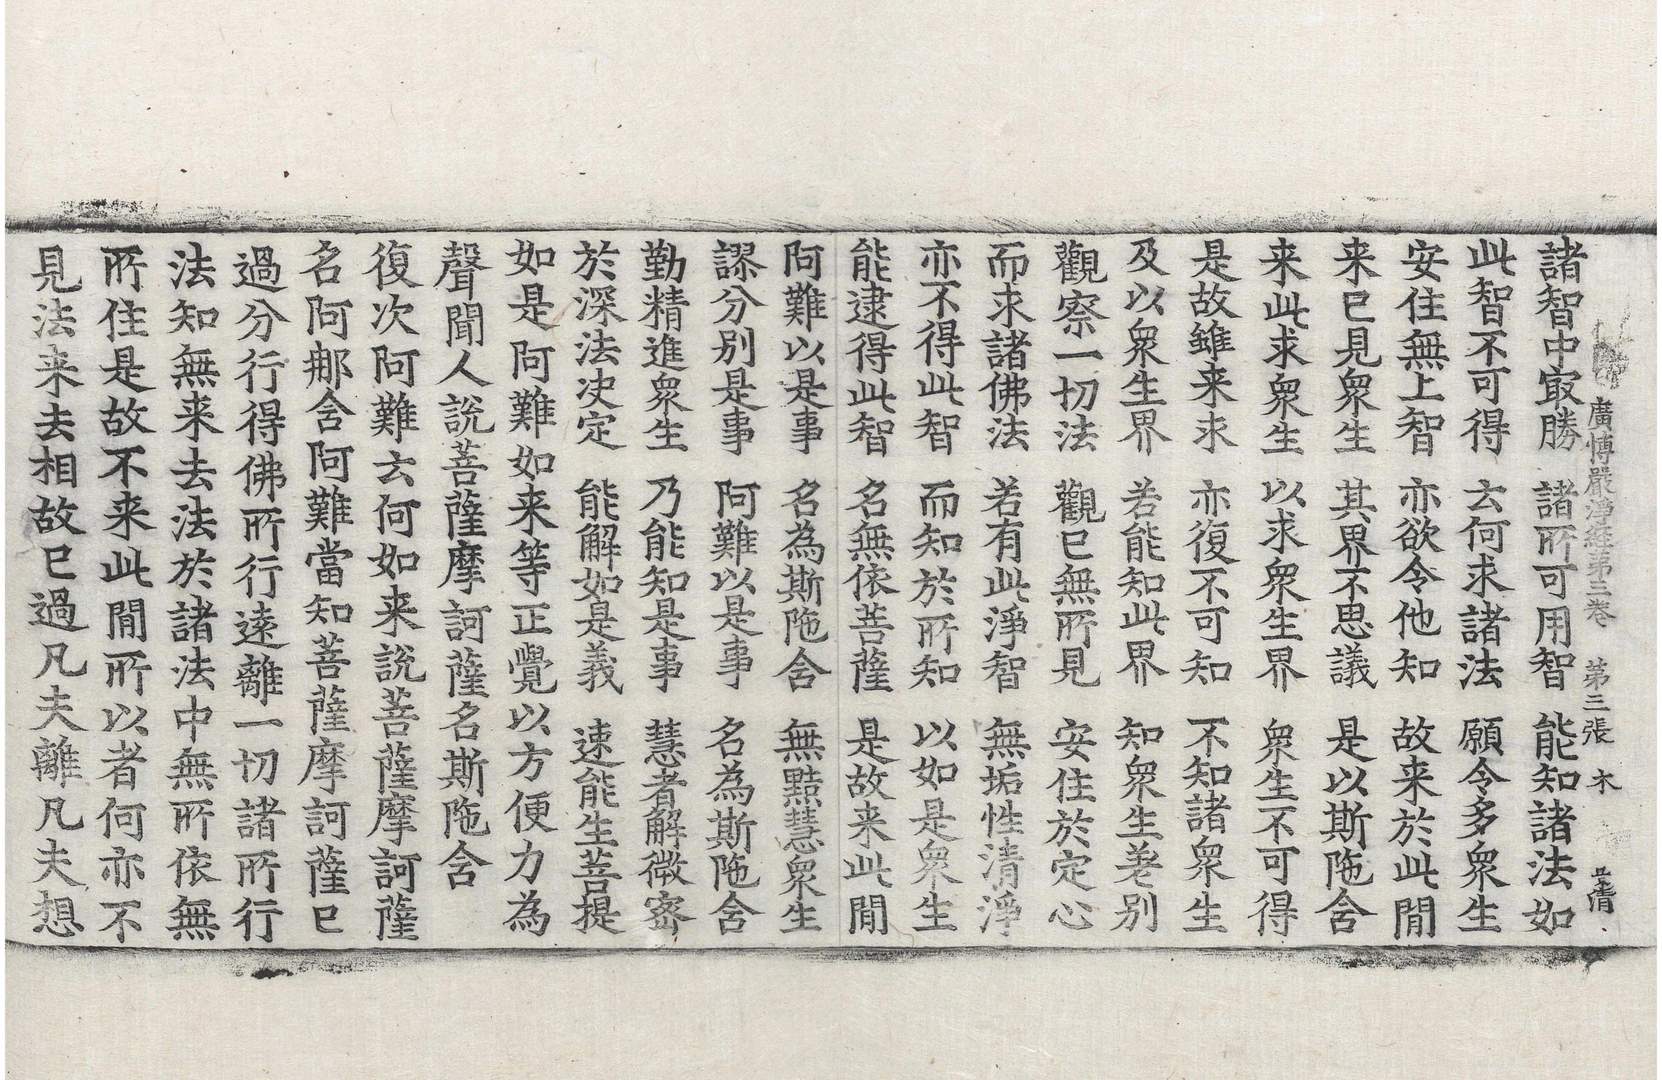 廣博嚴淨經第三卷 第三張 木
諸智中㝡勝 諸所可用智 能知諸法如
此智不可得 云何求諸法 願令多衆生
安住無上智 亦欲令他知 故来於此閒
来已見衆生 其界不思議 是以斯陁含
来此求衆生 以求衆生界 衆生不可得
是故雖来求 亦復不可知 不知諸衆生
及以衆生界 若能知此界 知衆生差别
觀察一切法 觀已無所見 安住於定心
而求諸佛法 若有此淨智 無垢性清淨
亦不得此智 而知於所知 以如是衆生
能逮得此智 名無依菩薩 是故来此閒
阿難以是事 名為斯陁含 無黠慧衆生
謬分别是事 阿難以是事 名為斯陁含
勤精進衆生 乃能知是事 慧者解微密
於深法决定 能解如是義 速能生菩提
如是阿難如来等正覺以方便力為
聲聞人說菩薩摩訶薩名斯陁含
復次阿難云何如来說菩薩摩訶薩
名阿那含阿難當知菩薩摩訶薩已
過分行得佛所行遠離一切諸所行
法知無来去法於諸法中無所依無
所住是故不来此閒所以者何亦不
見法来去相故已過凡夫離凡夫想